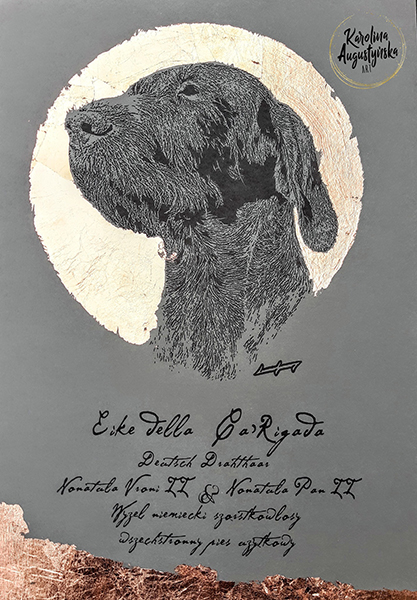 Karolina
Augustyńska
ART
Eike della Ca'Rigada
Deutsch Drahthaar
Nonatula Vroni II & Nonatula Pan II
Wyżeł niemiecki szorstkowłosy
wszechstronny pies użytkowy